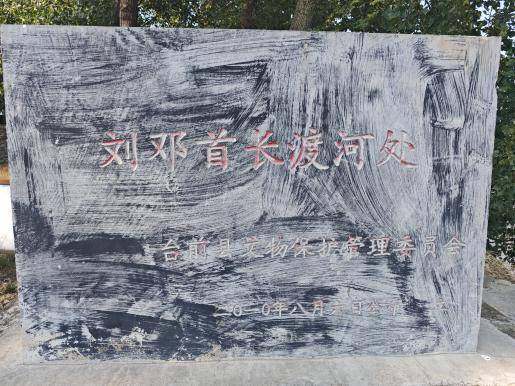 刘邓首长渡河处
台前县文物保护管理委员会
二〇一〇年八月六日公